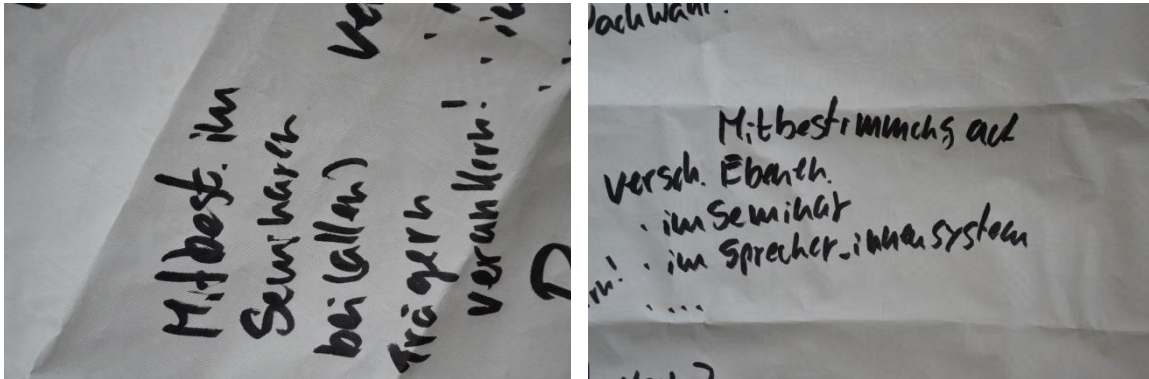 Mitbest. im
Seminaren
bei (allen)
Trägern
verankern!
Mitbestimmung auf
versch. Ebenen.
. im Seminar
. im Sprecher_innensystem
....